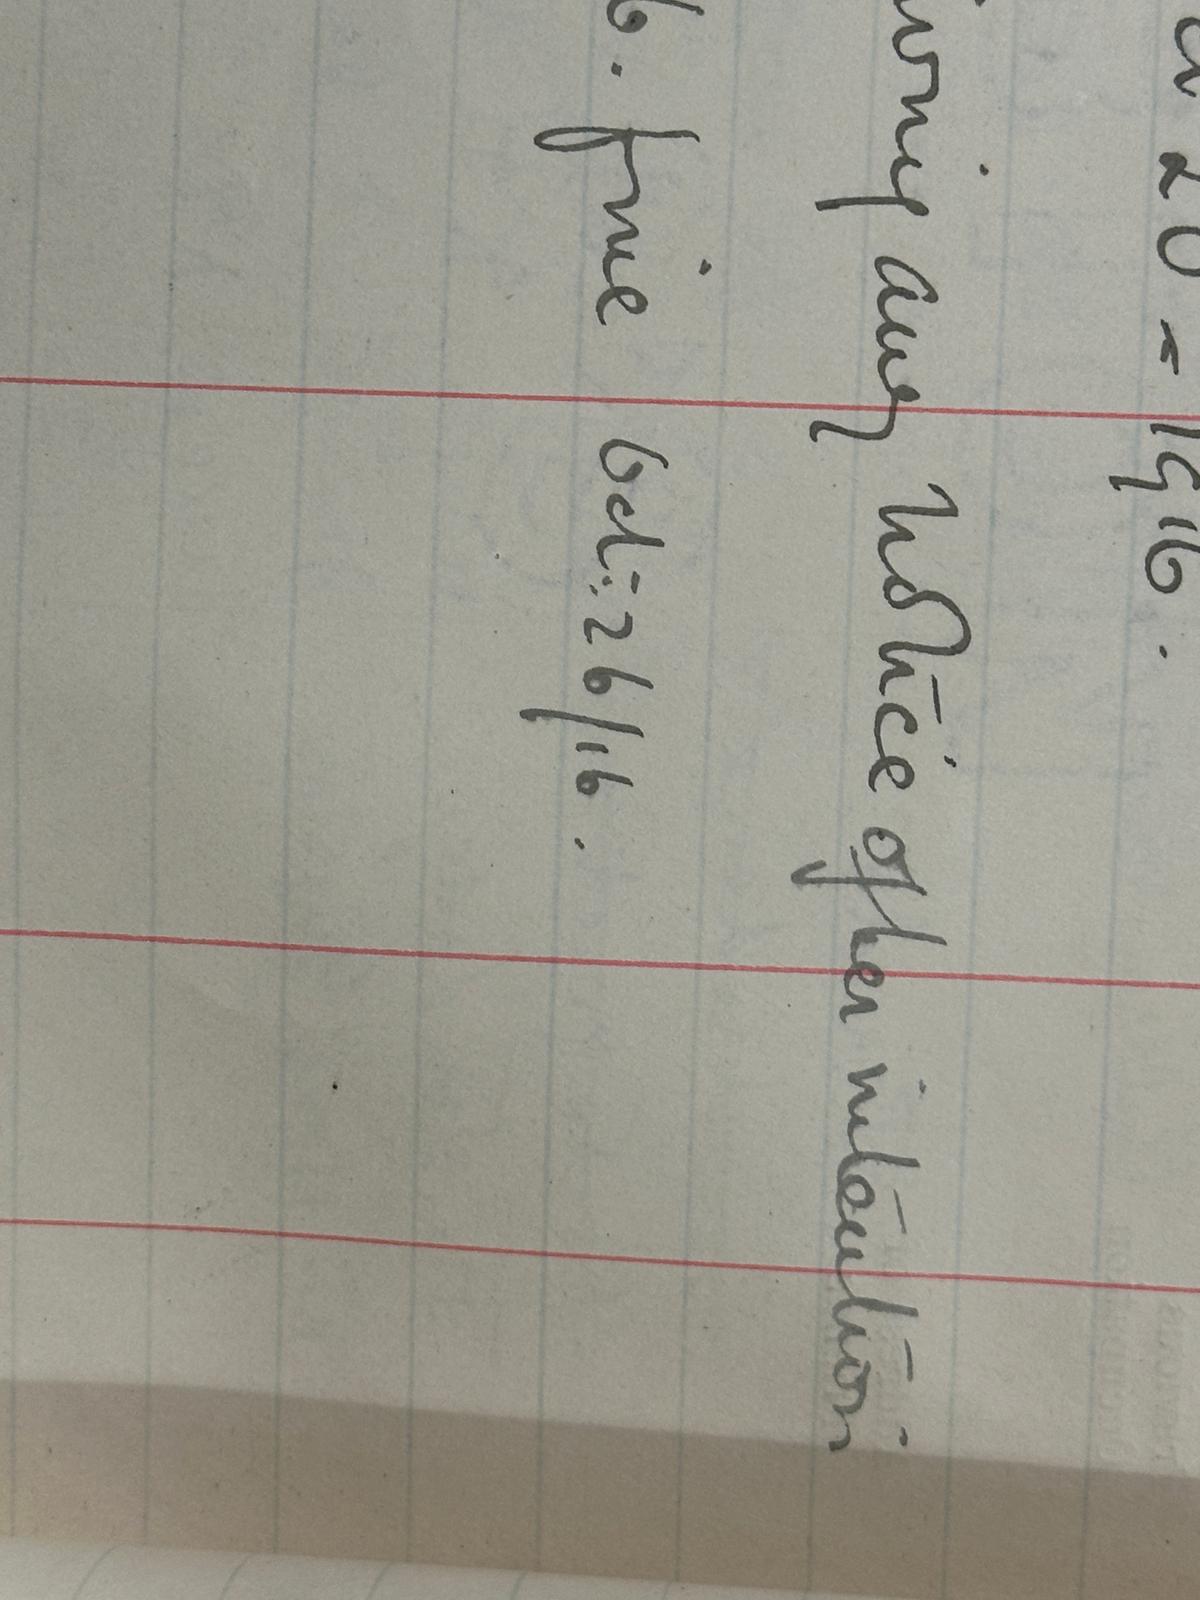 20 - 1916.
any notice of her intention
6. fine Oct: 26/16.